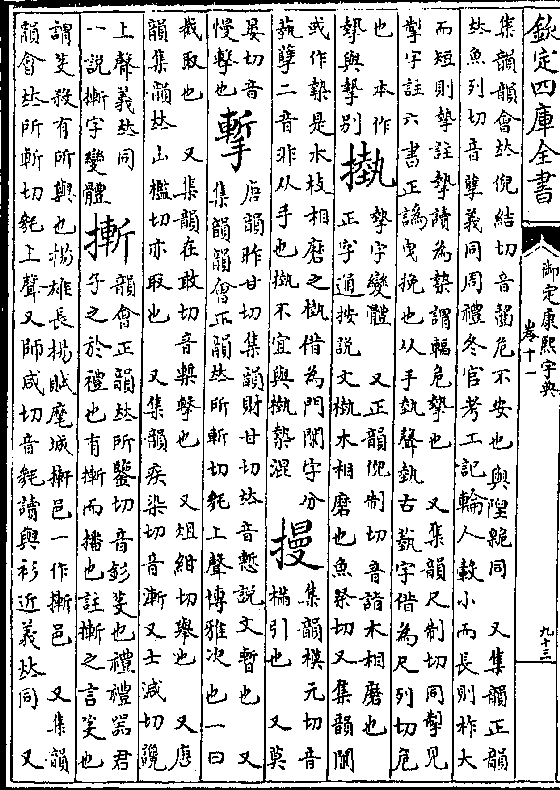 欽定四庫全書
御定康熙字典
卷十一
九十三
集韻韻會𠀤倪結切音齧危不安也與隉臲同　又集韻正韻
𠀤魚列切音孽義同周禮冬官考工記輪人轂小而長則柞大
而短則摯註摯讀為槷謂輻危摯也　又集韻尺制切同掣見
掣字註六書正譌曳挽也从手埶聲埶古藝字借為尺列切危
也　本作
摯與摯別
㩖
摯字變體　又正韻倪制切音詣木相磨也
正字通按說文槸木相磨也魚祭切又集韻闑
或作槷是木枝相磨之槸借為門闑字分
蓺孽二音非从手也㩖不宜與槸槷混
摱
集韻模元切音
樠引也　又莫
晏切音
慢擊也
㨻
唐韻昨甘切集韻財甘切𠀤音慙說文暫也　又
集韻韻會正韻𠀤所斬切毿上聲博雅次也一曰
芟取也　又集韻在敢切音槧擊也　又俎紺切舉也　又唐
韻集韻𠀤山檻切亦取也　又集韻疾染切音漸又士減切巉
上聲義𠀤同
一說摲字變體
摲
韻會正韻𠀤所鑒切音釤芟也禮禮器君
子之於禮也有摲而播也註摲之言芟也
謂芟殺有所與也揚雄長楊賦麾城摲邑一作摲邑　又集韻
韻會𠀤所斬切毿上聲又師咸切音毿讀與衫近義𠀤同　又